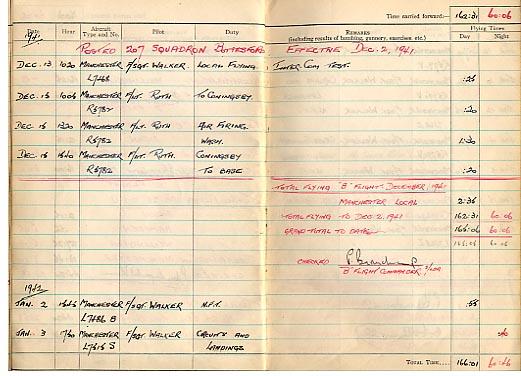 Time carried forward:— 162:31 60:06
1941
Date Hour Aircraft Type and No. Pilot Duty Remarks (including results of bombing, gunnery, exercises etc.) Flying Times
Day Night
POSTED 207 SQUADRON BOTTESFORD EFFECTIVE DEC. 2, 1941.
DEC. 13 1020 MANCHESTER F/SGT. WALKER. LOCAL FLYING. INTER COM TEST.
:25
DEC. 15 1005 MANCHESTER F/LT. RUTH TO CONINGSBY.
R5782 :20
DEC. 15 1320 MANCHESTER F/LT. RUTH AIR FIRING.
R5782 WASH. 1:30
DEC. 15 1640 MANCHESTER F/LT. RUTH. CONINGSBY
R5782 TO BASE :20
TOTAL FLYING "B" FLIGHT DECEMBER, 1941
MANCHESTER LOCAL 2:35
TOTAL FLYING TO DEC 2, 1941 162:31 60:06
GRAND TOTAL TO DATE 165:06 60:06
165:06 60:06
CHECKED
"B" FLIGHT COMMANDER
1942
JAN. 2 MANCHESTER F/SGT. WALKER N.F.T. :55
JAN. 3 MANCHESTER F/SGT WALKER CIRCUITS AND
S LANDINGS
TOTAL TIME.... 166:01